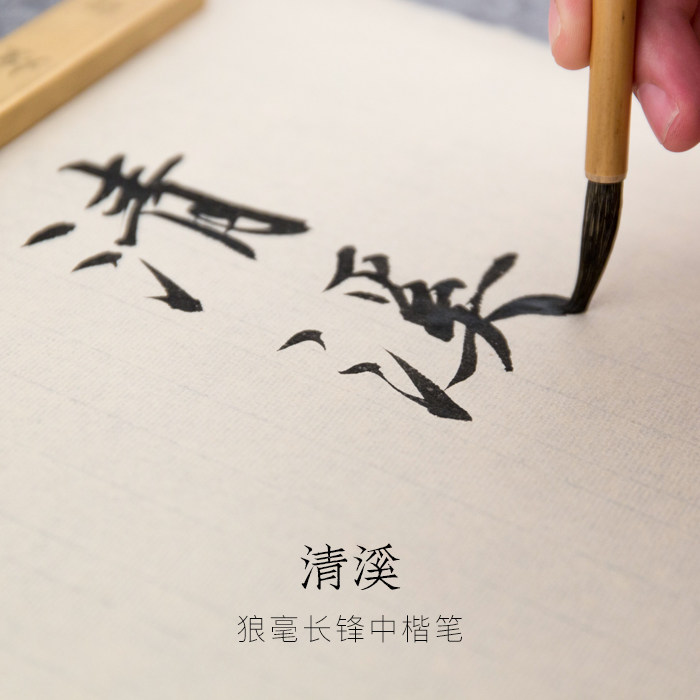 清溪
清溪
狼毫长锋中楷笔